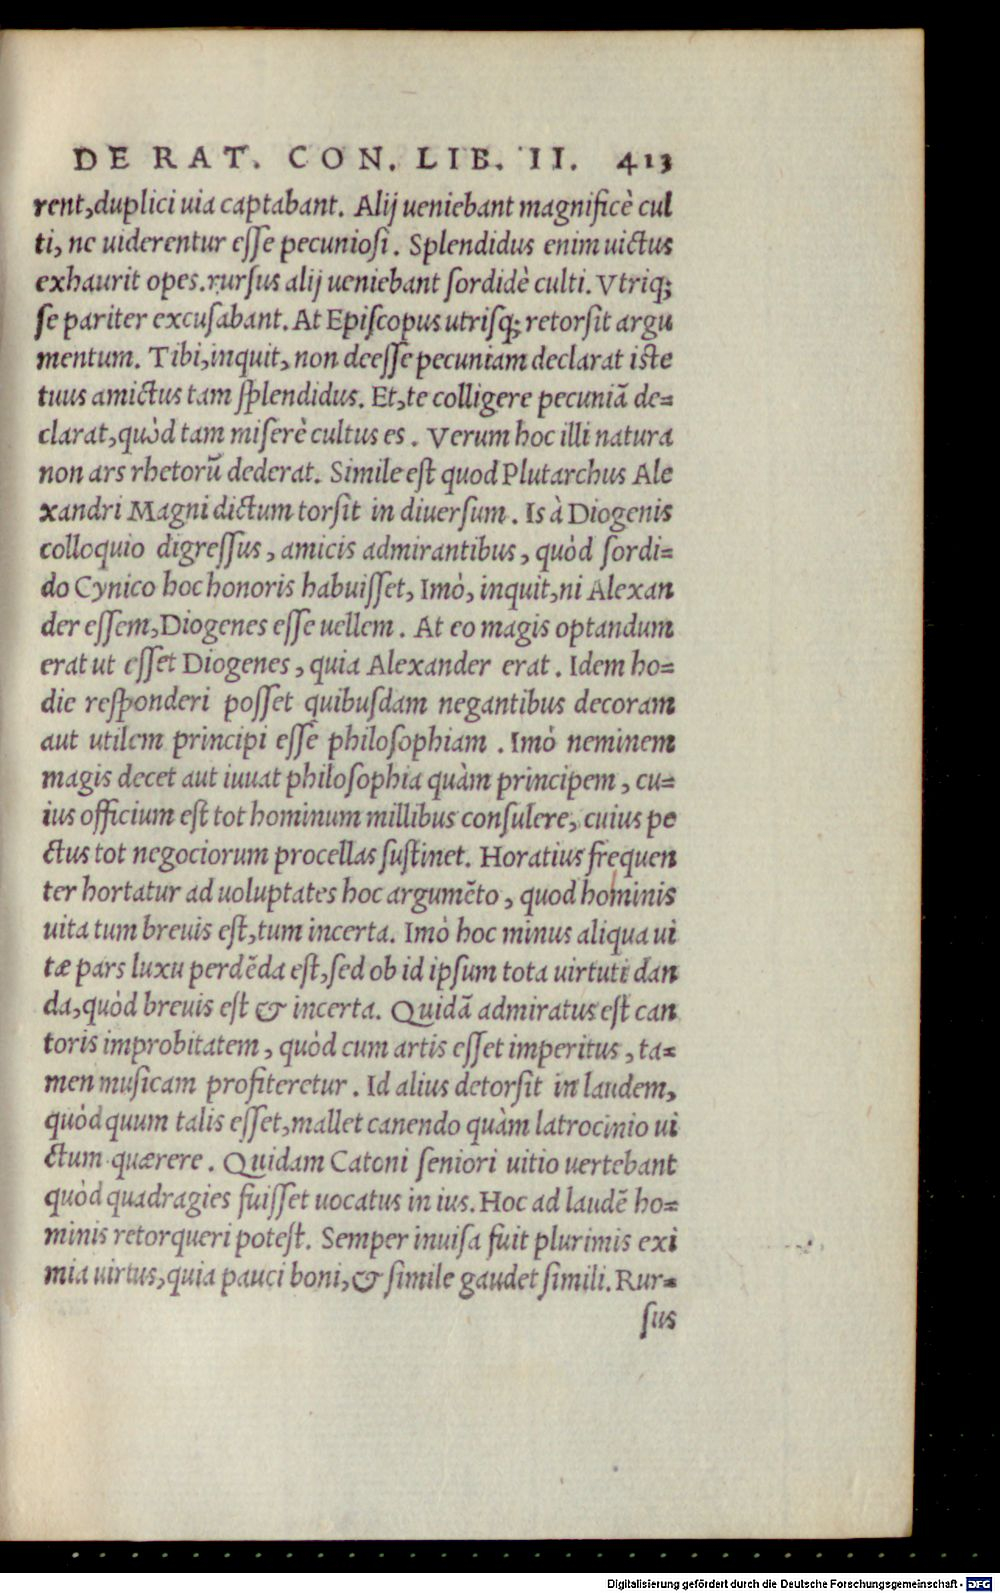 DE RAT. CON. LIB. II. 413
rent, duplici uia captabant. Alij ueniebant magnificè cul
ti, ne uiderentur eſſe pecunioſi. Splendidus enim uictus
exhaurit opes. rurſus alij ueniebant ſordidè culti. Vtriq;
ſe pariter excuſabant. At Epiſcopus utriſq; retorſit argu
mentum. Tibi, inquit, non deeſſe pecuniam declarat iſte
tuus amictus tam ſplendidus. Et, te colligere pecuniã de=
clarat, quòd tam miſerè cultus es. Verum hoc illi natura
non ars rhetorũ dederat. Simile eſt quod Plutarchus Ale
xandri Magni dictum torſit in diuerſum. Is à Diogenis
colloquio digreſſus, amicis admirantibus, quòd ſordi=
do Cynico hoc honoris habuiſſet, Imò, inquit, ni Alexan
der eſſem, Diogenes eſſe uellem. At eo magis optandum
erat ut eſſet Diogenes, quia Alexander erat. Idem ho=
die reſponderi poſſet quibuſdam negantibus decoram
aut utilem principi eſſe philoſophiam. Imò neminem
magis decet aut iuuat philoſophia quàm principem, cu=
ius officium eſt tot hominum millibus conſulere, cuius pe
ctus tot negociorum procellas ſuſtinet. Horatius frequen
ter hortatur ad uoluptates hoc argumẽto, quod hominis
uita tum breuis eſt, tum incerta. Imò hoc minus aliqua ui
tæ pars luxu perdẽda eſt, ſed ob id ipſum tota uirtuti dan
da, quòd breuis eſt & incerta. Quidã admiratus eſt can
toris improbitatem, quòd cum artis eſſet imperitus, ta=
men muſicam profiteretur. Id alius detorſit in laudem,
quòd quum talis eſſet, mallet canendo quàm latrocinio ui
ctum quærere. Quidam Catoni ſeniori uitio uertebant
quòd quadragies fuiſſet uocatus in ius. Hoc ad laudẽ ho=
minis retorqueri poteſt. Semper inuiſa fuit plurimis exi
mia uirtus, quia pauci boni, & ſimile gaudet ſimili. Rur=
ſus
Digitalisierung gefördert durch die Deutsche Forschungsgemeinschaft - DFG